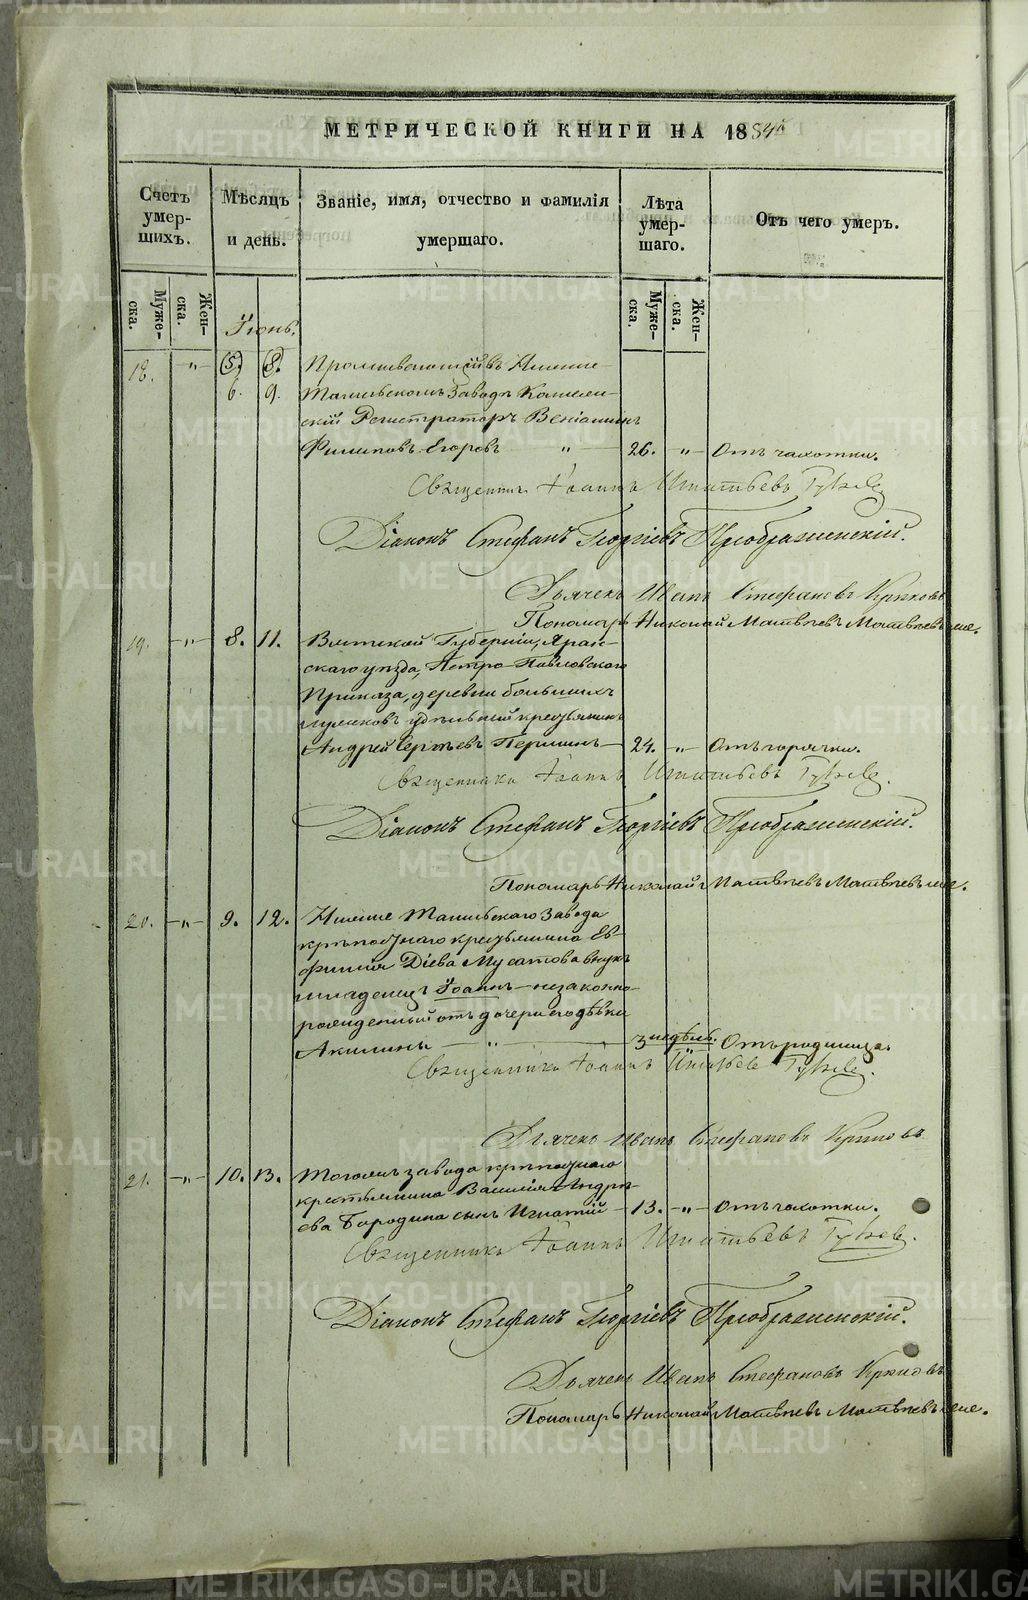 МЕТРИЧЕСКОЙ КНИГИ НА 1854й
Счетъ умер-шихъ.
Мѣсяцъ и день.
Званіе, имя, отчество и фамилія умершаго.
Лѣта умер-шаго.
Отъ чего умеръ.
Муже-ска.
Жен-ска.
Муже-ска.
Жен-ска.
Іюнь.
18. -„- 5. 8. Проживающій въ Нижне
6. 9. Тагильскомъ Заводѣ Коллеж-
скій Регистраторъ Веніаминъ
Филиповъ Егоровъ „ 26. -„- Отъ чахотки.
Священникъ Іоаннъ Игнатьевъ
Діаконъ Стефанъ Георгіевъ Преображенскій.
Дьячекъ Иванъ Стефановъ
Пономарь Николай Матвѣевъ Матвѣевъ
19. -„- 8. 11. Вятской Губерніи, Яран-
скаго уѣзда, Петро-Павловскаго
Приказа, деревни большихъ
удѣльный крестьянинъ
Андрей Сергѣевъ Першинъ 24. -„- Отъ горячки.
Священникъ Іоаннъ Игнатьевъ
Діаконъ Стефанъ Георгіевъ Преображенскій.
Пономарь Николай Матвѣевъ Матвѣевъ
20. -„- 9. 12. Нижне Тагильскаго Завода
крѣпостнаго крестьянина Ев-
фимія Діева Мусатова внукъ
младенецъ Іоаннъ-незаконно-
рожденный отъ дочери его дѣвки
Акилины „ 3 недѣль. Отъ родимца.
Священникъ Іоаннъ Игнатьевъ
Дьячекъ Иванъ Стефановъ
21. -„- 10. 13. Тогожъ завода крѣпостнаго
крестьянина Василія Андрѣ-
ева Бородина сынъ Игнатій 13. -„- Отъ чахотки.
Священникъ Іоаннъ Игнатьевъ
Діаконъ Стефанъ Георгіевъ Преображенскій.
Дьячекъ Иванъ Стефановъ
Пономарь Николай Матвѣевъ Матвѣевъ
METRIKI.GASO-URAL.RU